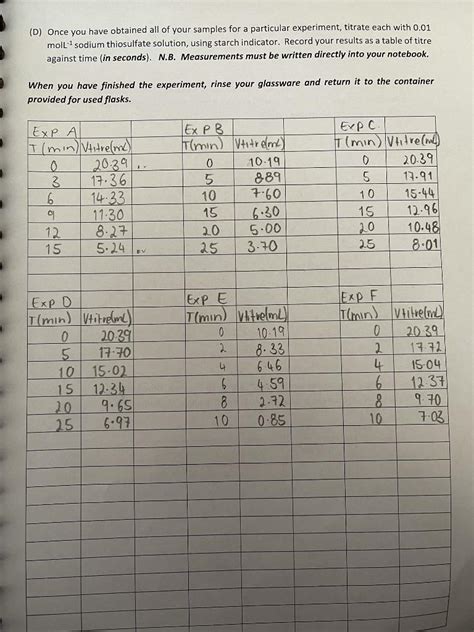 (D) Once you have obtained all of your samples for a particular experiment, titrate each with 0.01
molL⁻¹ sodium thiosulfate solution, using starch indicator. Record your results as a table of titre
against time (in seconds). N.B. Measurements must be written directly into your notebook.
When you have finished the experiment, rinse your glassware and return it to the container
provided for used flasks.
Exp A Exp B Exp C
T(min) Vtitre(mL) T(min) Vtitre(mL) T(min) Vtitre(mL)
0 20.39 0 10.19 0 20.39
3 17.36 5 8.89 5 17.91
6 14.33 10 7.60 10 15.44
9 11.30 15 6.30 15 12.96
12 8.27 20 5.00 20 10.48
15 5.24 25 3.70 25 8.01
Exp D Exp E Exp F
T(min) Vtitre(mL) T(min) Vtitre(mL) T(min) Vtitre(mL)
0 20.39 0 10.19 0 20.39
5 17.70 2 8.33 2 17.72
10 15.02 4 6.46 4 15.04
15 12.34 6 4.59 6 12.37
20 9.65 8 2.72 8 9.70
25 6.97 10 0.85 10 7.03